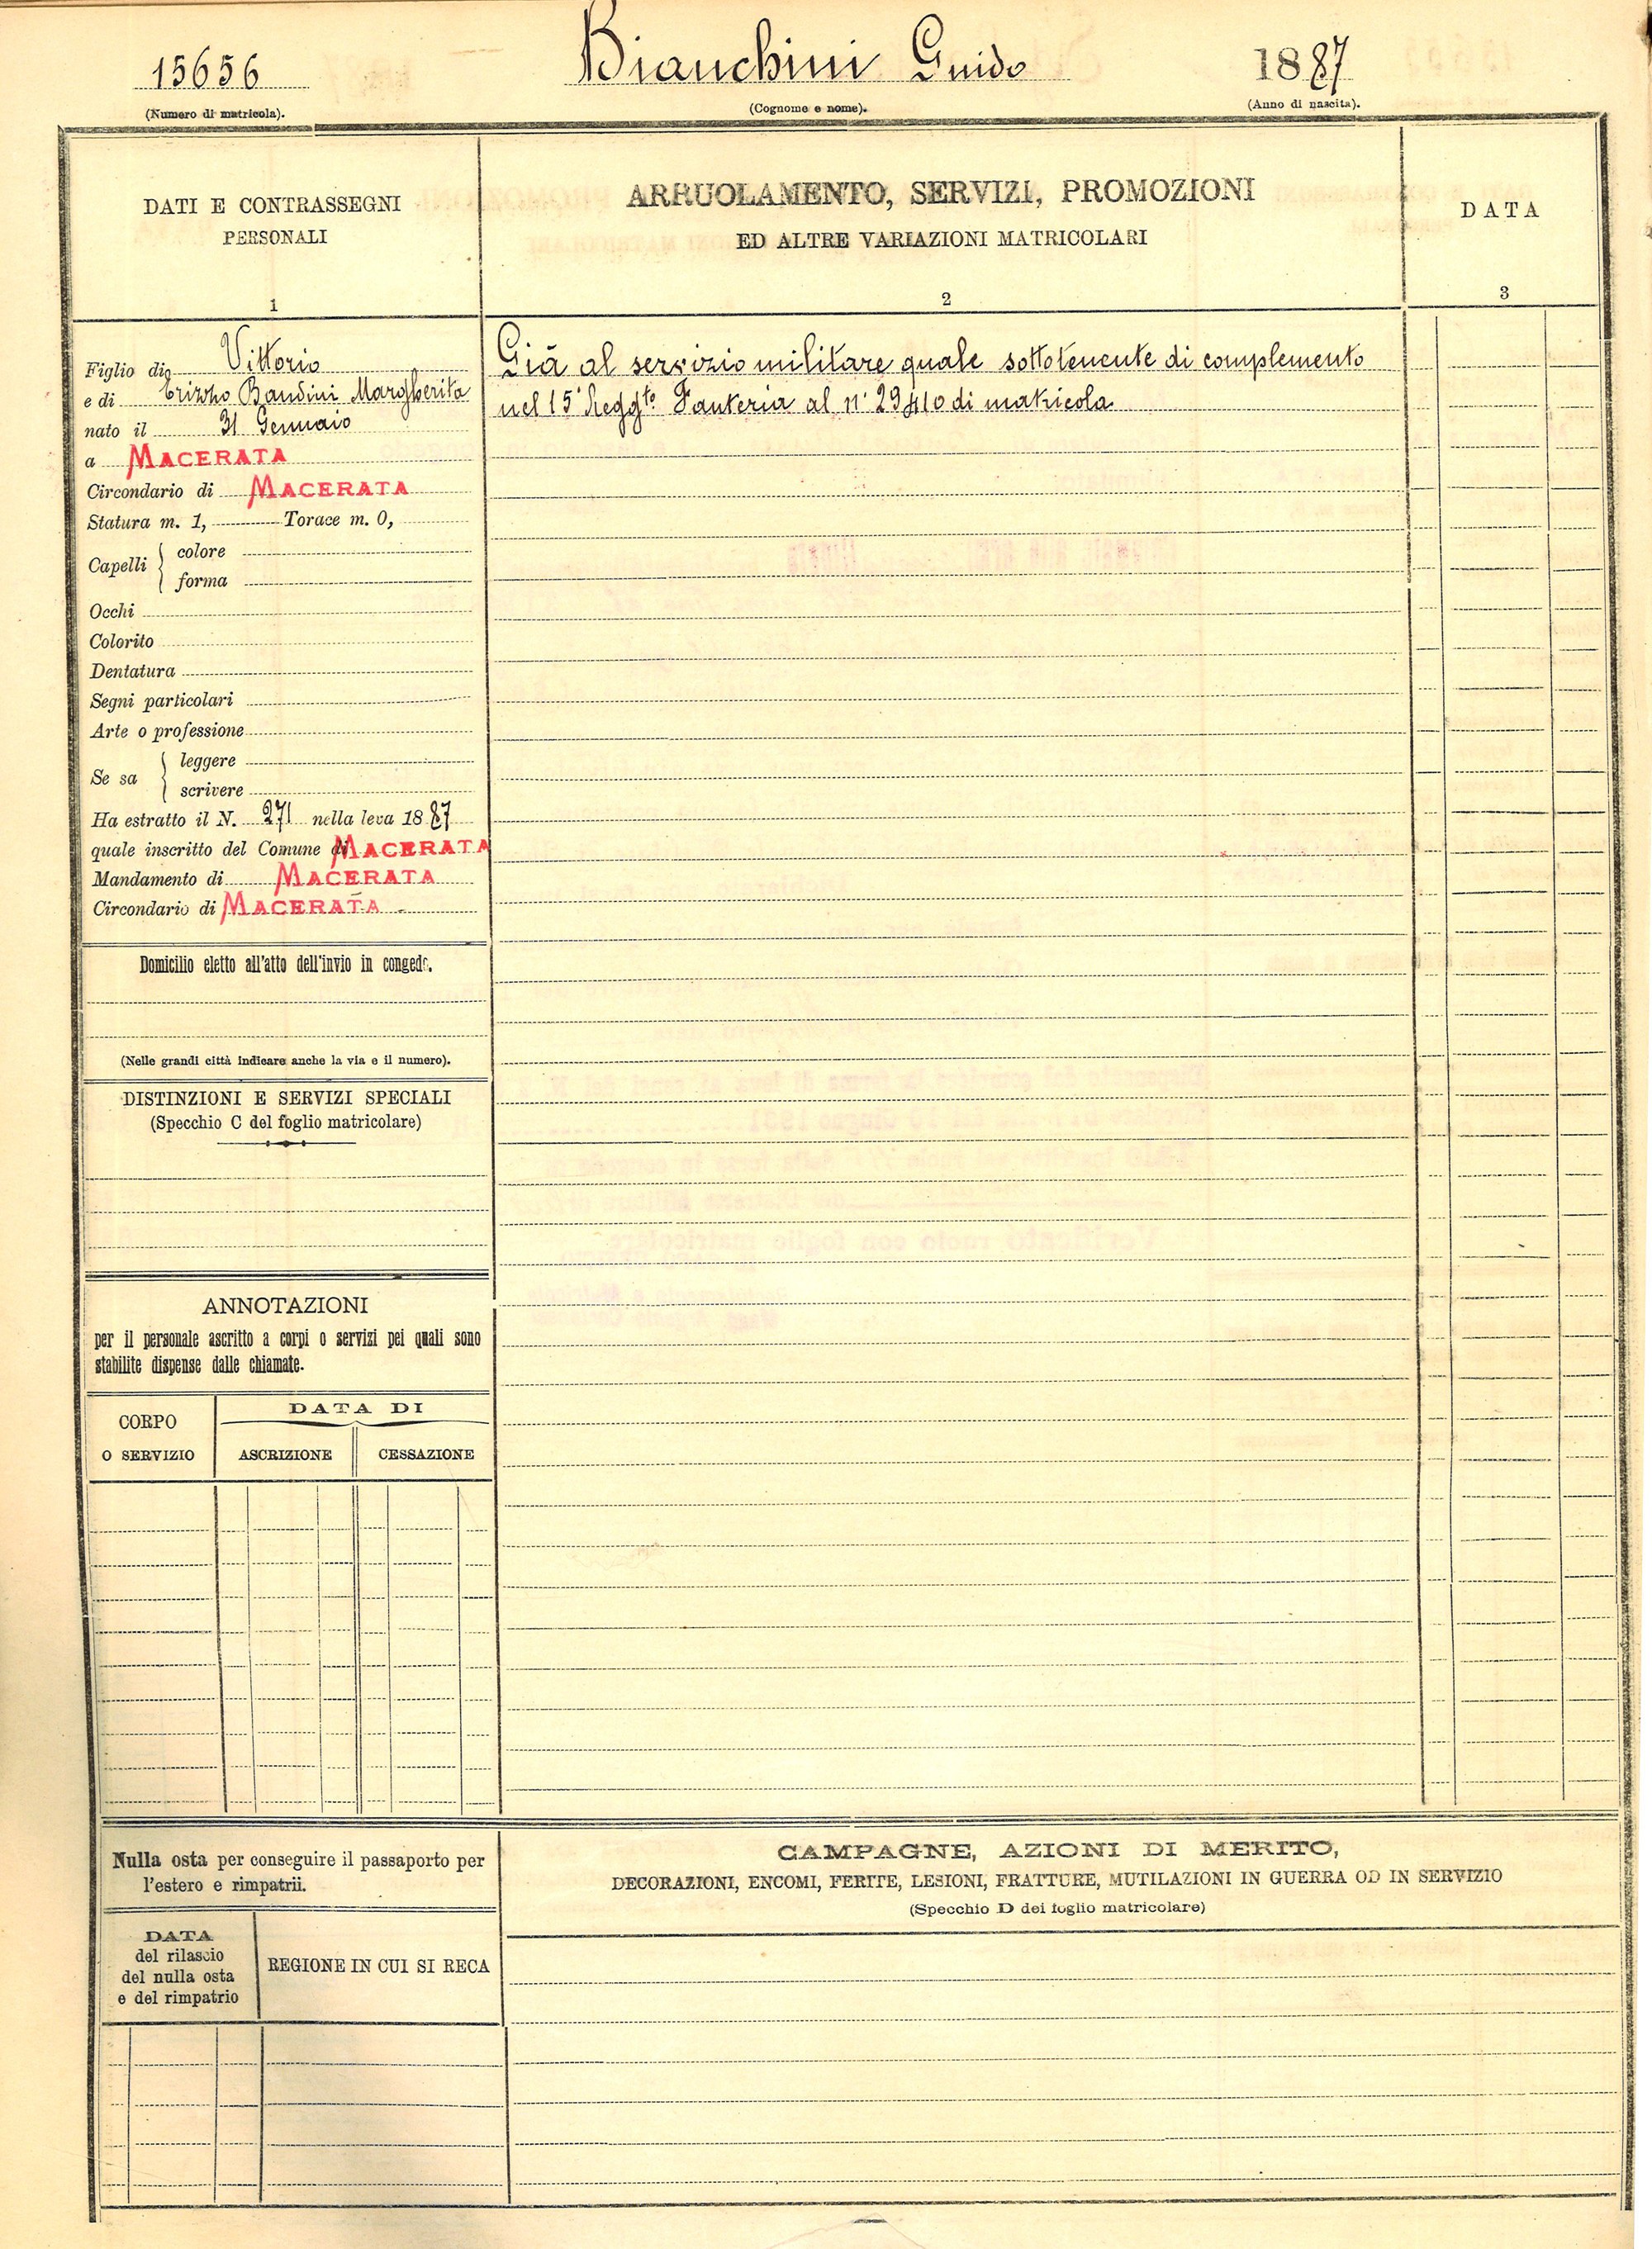 15656 Bianchini Guido 1887
(Numero di matricola). (Cognome e nome). (Anno di nascita).
DATI E CONTRASSEGNI
PERSONALI
1
ARRUOLAMENTO, SERVIZI, PROMOZIONI
ED ALTRE VARIAZIONI MATRICOLARI
2
DATA
3
Figlio di Vittorio
e di Trizzo Bandini Margherita
nato il 31 Gennaio
a MACERATA
Circondario di MACERATA
Statura m. 1, Torace m. 0,
Capelli colore
forma
Occhi
Colorito
Dentatura
Segni particolari
Arte o professione
Se sa leggere
scrivere
Ha estratto il N. 271 nella leva 1887
quale inscritto del Comune di MACERATA
Mandamento di MACERATA
Circondario di MACERATA
Già al servizio militare quale sottotenente di complemento
nel 15° Reggto Fanteria al n° 29410 di matricola
Domicilio eletto all'atto dell'invio in congedo.
(Nelle grandi città indicare anche la via e il numero).
DISTINZIONI E SERVIZI SPECIALI
(Specchio C del foglio matricolare)
ANNOTAZIONI
per il personale ascritto a corpi o servizi pei quali sono
stabilite dispense dalle chiamate.
CORPO
O SERVIZIO
DATA DI
ASCRIZIONE CESSAZIONE
Nulla osta per conseguire il passaporto per
l'estero e rimpatrii.
DATA
del rilascio
del nulla osta
e del rimpatrio
REGIONE IN CUI SI RECA
CAMPAGNE, AZIONI DI MERITO,
DECORAZIONI, ENCOMI, FERITE, LESIONI, FRATTURE, MUTILAZIONI IN GUERRA OD IN SERVIZIO
(Specchio D dei foglio matricolare)